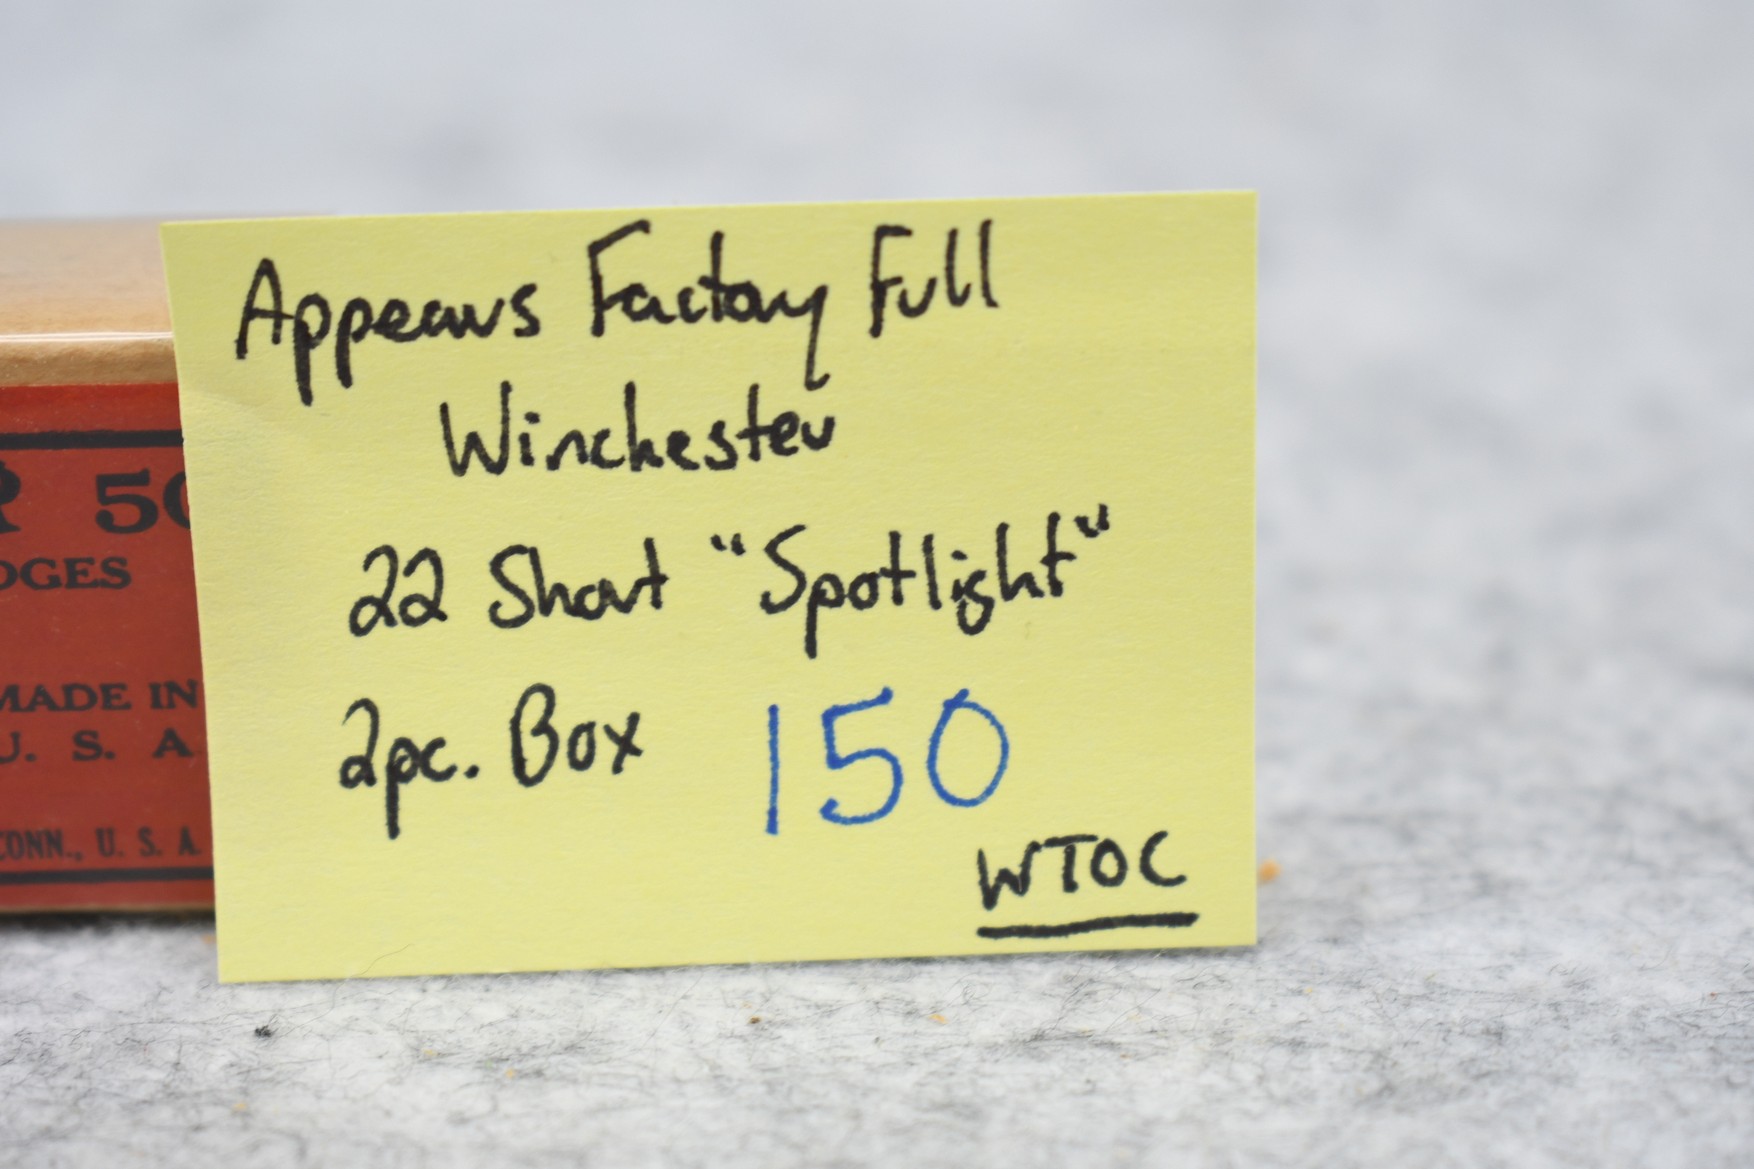 Appears Factory Full
Winchester
22 Short "Spotlight"
2pc. Box 150
WTOC
50
DGES
MADE IN
U. S. A
CONN., U. S. A.